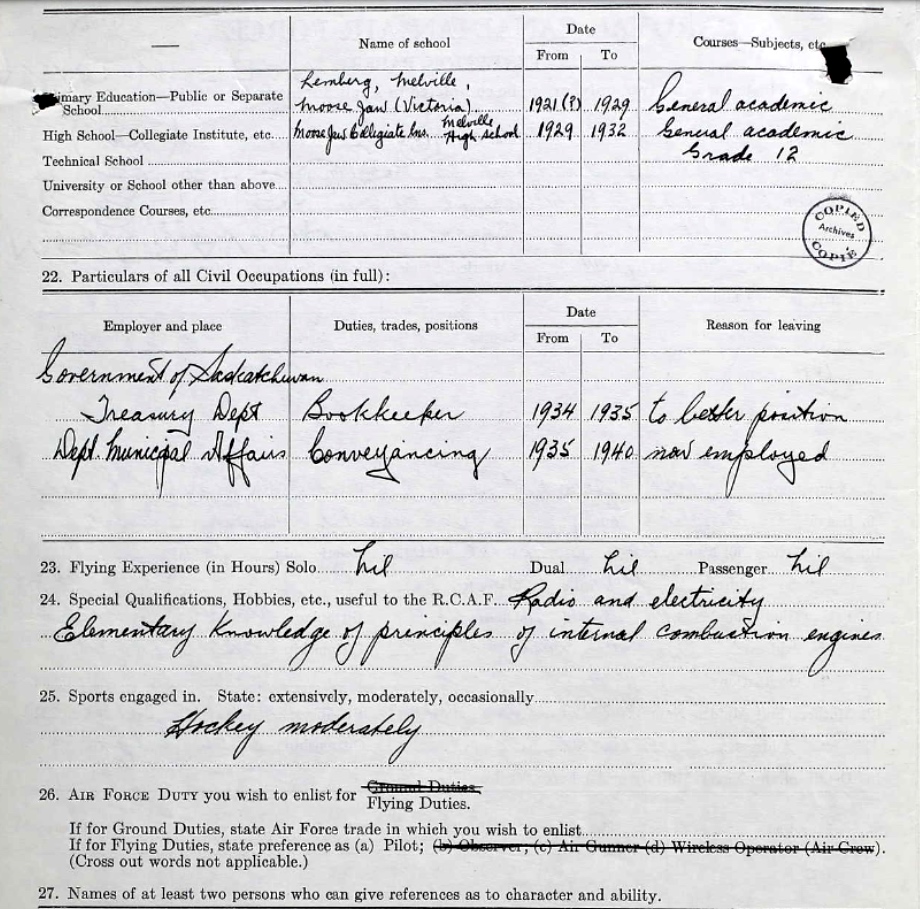 —
Name of school
Date
Courses—Subjects, etc.
From To
Lemberg, Melville,
Primary Education—Public or Separate
School Moose Jaw (Victoria) 1921(?) 1929 General academic
High School—Collegiate Institute, etc. Moose Jaw Collegiate Ins. Melville High School 1929 1932 General academic
Technical School Grade 12
University or School other than above
Correspondence Courses, etc.
COPIED
Archives
COPIÉ
22. Particulars of all Civil Occupations (in full):
Employer and place Duties, trades, positions Date Reason for leaving
From To
Government of Saskatchewan
Treasury Dept Bookkeeper 1934 1935 to better position
Dept. Municipal Affairs Conveyancing 1935 1940 now employed
23. Flying Experience (in Hours) Solo nil Dual nil Passenger nil
24. Special Qualifications, Hobbies, etc., useful to the R.C.A.F. Radio and electricity
Elementary Knowledge of principles of internal combustion engines
25. Sports engaged in. State: extensively, moderately, occasionally
Hockey moderately
26. AIR FORCE DUTY you wish to enlist for Ground Duties,
Flying Duties.
If for Ground Duties, state Air Force trade in which you wish to enlist
If for Flying Duties, state preference as (a) Pilot; (b) Observer; (c) Air Gunner (d) Wireless Operator (Air Crew).
(Cross out words not applicable.)
27. Names of at least two persons who can give references as to character and ability.